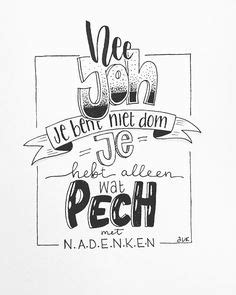 Nee
joh
je bent niet dom
Je
hebt alleen
wat
PECH
met
N.A.D.E.N.K.E.N